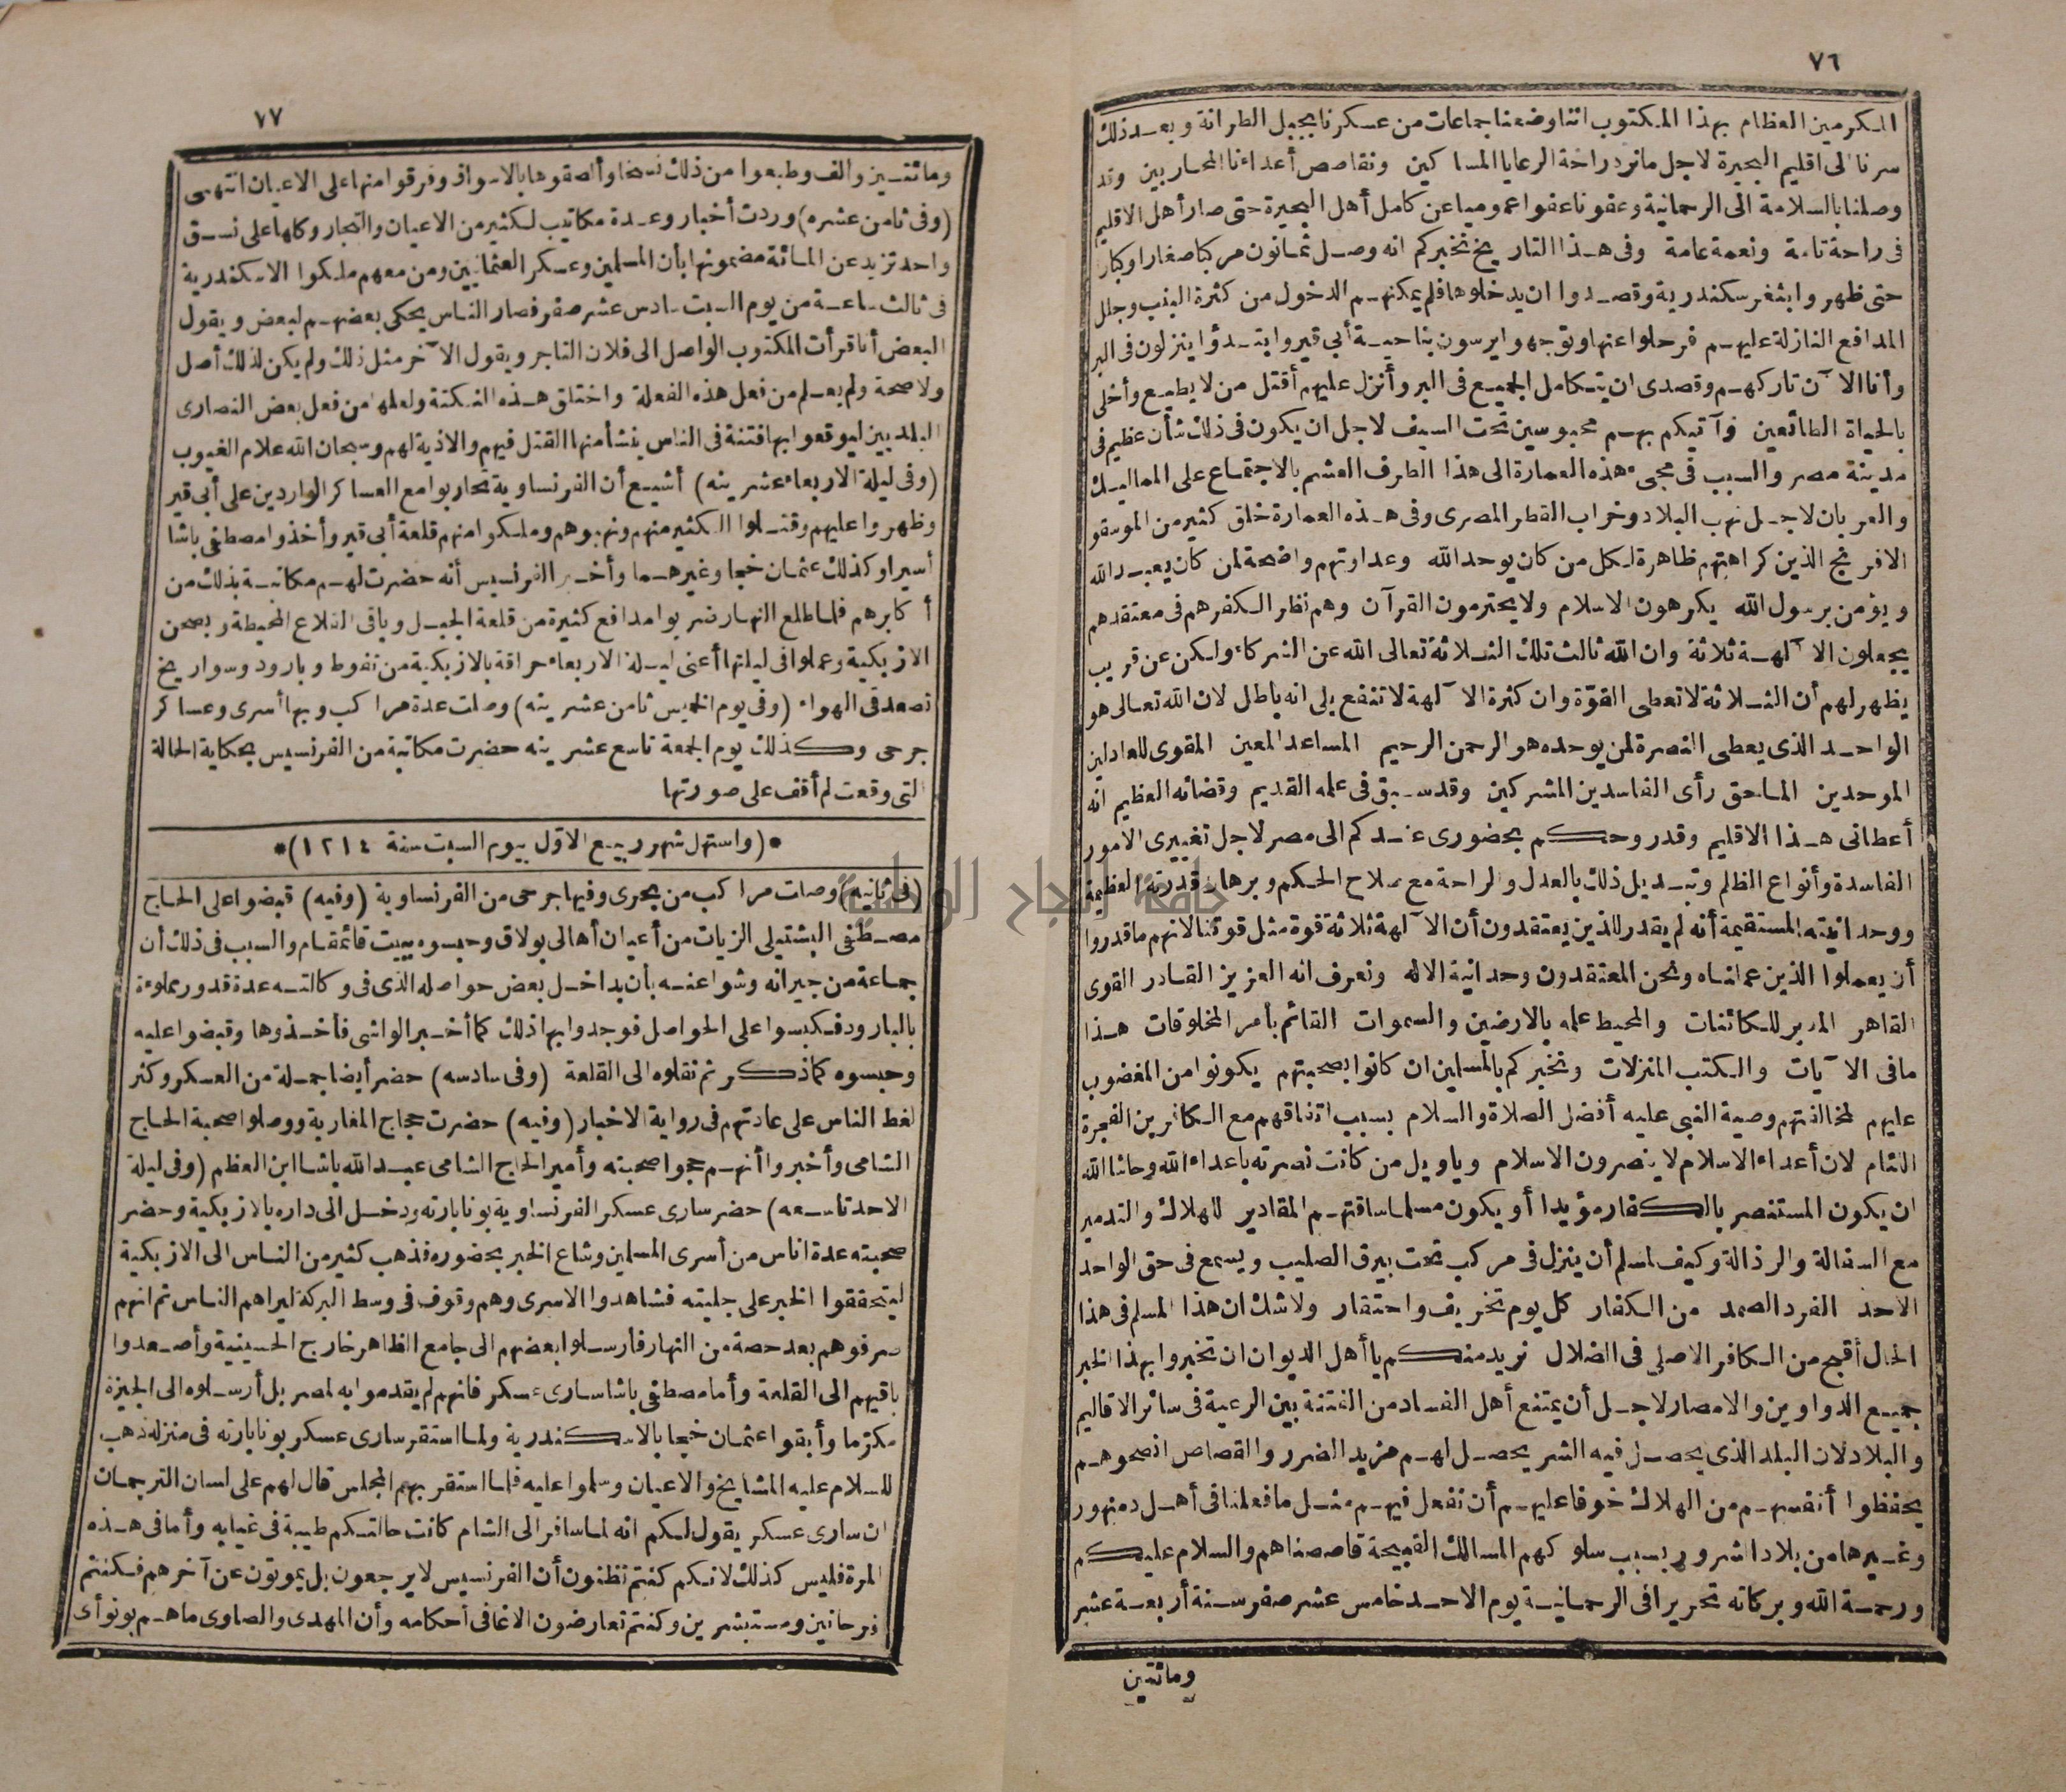 ٧٦
المكرمين العظام بهذا المكتوب اننا وضعنا جماعات من عسكرنا بجبل الطرانة وبعد ذلك
سرنا الى اقليم البحيرة لاجل ما نرد راحة الرعايا المساكين ونقاصص أعداءنا المحاربين وقد
وصلنا بالسلامة الى الرحمانية وعفونا عفوا عموميا عن كامل أهل البحيرة حتى صار أهل الاقليم
فى راحة تامة ونعمة عامة وفى هذا التاريخ نخبركم انه وصل ثمانون مركبا صغارا وكبارا
حتى ظهروا بثغر سكندرية وقصدوا ان يدخلوها فلم يمكنهم الدخول من كثرة البنب وجلل
المدافع النازلة عليهم فرحلوا عنها وتوجهوا يرسون بناحية أبى قير وابتدؤا ينزلون فى البر
وأنا الآن تاركهم وقصدى ان يتكامل الجميع فى البر وأنزل عليهم أقتل من لا يطيع وأخلى
بالحياة الطائعين وآتيكم بهم محبوسين تحت السيف لاجل ان يكون فى ذلك شأن عظيم فى
مدينة مصر والسبب فى مجىء هذه العمارة الى هذا الطرف العشم بالاجتماع على المماليك
والعربان لاجل نهب البلاد وخراب القطر المصرى وفى هذه العمارة خلق كثير من الموسقو
الافرنج الذين كراهتهم ظاهرة لكل من كان يوحد الله وعداوتهم واضحة لمن كان يعبد الله
ويؤمن برسول الله يكرهون الاسلام ولا يحترمون القرآن وهم نظرا لكفرهم فى معتقدهم
يجعلون الآلهة ثلاثة وان الله ثالث تلك الثلاثة تعالى الله عن الشركاء ولكن عن قريب
يظهر لهم أن الثلاثة لا تعطى القوّة وان كثرة الآلهة لا تنفع بلى انه باطل لان الله تعالى هو
الواحد الذى يعطى النصرة لمن يوحده هو الرحمن الرحيم المساعد المعين المقوى للعادلين
الموحدين الماحق رأى الفاسدين المشركين وقد سبق فى علمه القديم وقضائه العظيم انه
أعطانى هذا الاقليم وقدر وحكم بحضورى عندكم الى مصر لاجل تغييرى الامور
الفاسدة وأنواع الظلم وتبديل ذلك بالعدل والراحة مع صلاح الحكم وبرهان قدرته العظيمة
ووحدانيته المستقيمة أنه لم يقدر للذين يعتقدون أن الآلهة ثلاثة قوة مثل قوتنا لانهم ما قدروا
أن يعملوا الذى عملناه ونحن المعتقدون وحدانية الاله ونعرف انه العزيز القادر القوى
القاهر المدبر للكائنات والمحيط علمه بالارضين والسموات القائم بأمر المخلوقات هذا
ما فى الآيات والكتب المنزلات ونخبركم بالمسلمين ان كانوا بصحبتهم يكونوا من المغضوب
عليهم لمخالفتهم وصية النبى عليه أفضل الصلاة والسلام بسبب اتفاقهم مع الكافرين الفجرة
اللئام لان أعداء الاسلام لا ينصرون الاسلام وياويل من كانت نصرته باعداء الله وحاشا الله
ان يكون المستنصر بالكفار مؤيدا أو يكون مسلما ساقتهم المقادير للهلاك والتدمير
مع السفالة والرذالة وكيف لمسلم أن ينزل فى مركب تحت بيرق الصليب ويسمع فى حق الواحد
الاحد الفرد الصمد من الكفار كل يوم تخريف واحتقار ولا شك ان هذا المسلم فى هذا
الحال أقبح من الكافر الاصلى فى الضلال نريد منكم يا أهل الديوان ان تخبروا بهذا الخبر
جميع الدواوين والامصار لاجل أن يمتنع أهل الفساد من الفتنة بين الرعية فى سائر الاقاليم
والبلاد لان البلد الذى يحصل فيه الشر يحصل لهم مزيد الضرر والقصاص انصحوهم
يحفظوا أنفسهم من الهلاك خوفا عليهم أن نفعل فيهم مثل ما فعلنا فى أهل دمنهور
وغيرها من بلاد الشرور بسبب سلوكهم المسالك القبيحة قاصصناهم والسلام عليكم
ورحمة الله وبركاته تحريرا فى الرحمانية يوم الاحد خامس عشر صفر سنة أربعة عشر
ومائتين
٧٧
ومائتين وألف وطبعوا من ذلك نسخا وألصقوها بالاسواق وفرقوا منها على الاعيان انتهى
(وفى ثامن عشره) وردت أخبار وعدة مكاتيب لكثير من الاعيان والتجار وكلها على نسق
واحد تزيد عن المائة مضمونها بأن المسلمين وعسكر العثمانيين ومن معهم ملكوا الاسكندرية
فى ثالث ساعة من يوم السبت سادس عشر صفر فصار الناس يحكى بعضهم لبعض ويقول
البعض أنا قرأت المكتوب الواصل الى فلان التاجر ويقول الآخر مثل ذلك ولم يكن لذلك أصل
ولا صحة ولم يعلم من فعل هذه الفعلة واختلق هذه النكتة ولعلها من فعل بعض النصارى
البلديين ليوقعوا بها فتنة فى الناس ينشأ منها القتل فيهم والاذية لهم وسبحان الله علام الغيوب
(وفى ليلة الاربعاء عشرينه) أشيع أن الفرنساوية تحاربوا مع العساكر الواردين على أبى قير
وظهروا عليهم وقتلوا الكثير منهم ونهبوهم وملكوا منهم قلعة أبى قير وأخذوا مصطفى باشا
أسيرا وكذلك عثمان خجا وغيرهما وأخبر الفرنسيس أنه حضرت لهم مكاتبة بذلك من
أكابرهم فلما طلع النهار ضربوا مدافع كثيرة من قلعة الجبل وباقى القلاع المحيطة وبصحن
الازبكية وعملوا فى ليلتها أعنى ليلة الاربعاء حراقة بالازبكية من نفوط وبارود وسواريخ
تصعد فى الهواء (وفى يوم الخميس ثامن عشرينه) وصلت عدة مراكب وبها أسرى وعساكر
جرحى وكذلك يوم الجمعة تاسع عشرينه حضرت مكاتبة من الفرنسيس بحكاية الحالة
التى وقعت لم أقف على صورتها
*(واستهل شهر ربيع الاوّل بيوم السبت سنة ١٢١٤)*
(فى ثانيه) وصلت مراكب من بحرى وفيها جرحى من الفرنساوية (وفيه) قبضوا على الحاج
مصطفى البشتيلى الزيات من أعيان أهالى بولاق وحبسوه ببيت قائمقام والسبب فى ذلك أن
جماعة من جيرانه وشوا عنه بأن بداخل بعض حواصله الذى فى وكالته عدة قدور مملوءة
بالبارود فكبسوا على الحواصل فوجدوا بها ذلك كما أخبر الواشى فأخذوها وقبضوا عليه
وحبسوه كما ذكر ثم نقلوه الى القلعة (وفى سادسه) حضر أيضا جملة من العسكر وكثر
لغط الناس على عادتهم فى رواية الاخبار (وفيه) حضرت حجاج المغاربة ووصلوا صحبة الحاج
الشامى وأخبروا أنهم حجوا صحبته وأمير الحاج الشامى عبد الله باشا ابن العظم (وفى ليلة
الاحد تاسعه) حضر سارى عسكر الفرنساوية بونابارته ودخل الى داره بالازبكية وحضر
صحبته عدة اناس من أسرى المسلمين وشاع الخبر بحضوره فذهب كثير من الناس الى الازبكية
ليتحققوا الخبر على جليته فشاهدوا الاسرى وهم وقوف فى وسط البركة ليراهم الناس ثم انهم
صرفوهم بعد حصة من النهار فأرسلوا بعضهم الى جامع الظاهر خارج الحسينية وأصعدوا
باقيهم الى القلعة وأما مصطفى باشا سارى عسكر فانهم لم يقدموا به لمصر بل أرسلوه الى الجيزة
مكرّما وأبقوا عثمان خجا بالاسكندرية ولما استقر سارى عسكر بونابارته فى منزله ذهب
للسلام عليه المشايخ والاعيان وسلموا عليه فلما استقر بهم المجلس قال لهم على لسان الترجمان
ان سارى عسكر يقول لكم انه لما سافر الى الشام كانت حالتكم طيبة فى غيابه وأما فى هذه
المرة فليس كذلك لانكم كنتم تظنون أن الفرنسيس لا يرجعون بل يموتون عن آخرهم فكنتم
فرحانين ومستبشرين وكنتم تعارضون الاغا فى أحكامه وأن المهدى والصاوى ما هم بونو أى
جامعة النجاح الوطنية